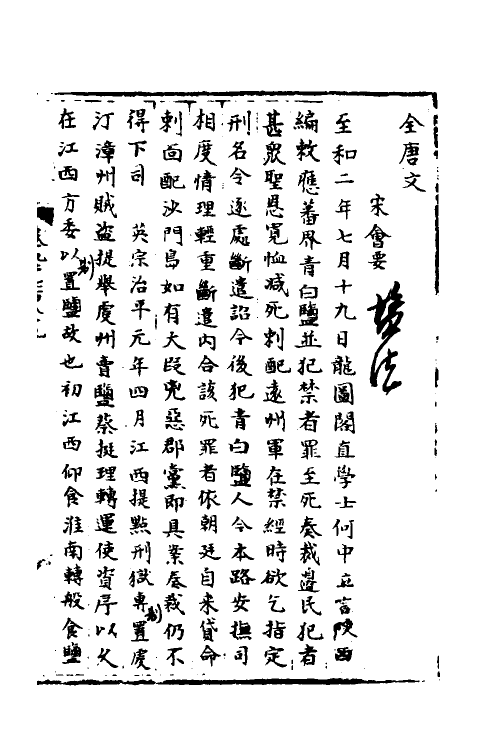 全唐文
宋會要
鹽法
至和二年七月十九日龍圖閣直學士何中立言陝西
編敕應蕃界青白鹽並犯禁者罪至死奏裁邊民犯者
甚眾聖恩寬恤減死刺配遠州軍在禁經時欲乞指定
刑名令逐處斷遣詔今後犯青白鹽人令本路安撫司
相度情理輕重斷遣內合該死罪者依朝廷自来貸命
刺面配沙門島如有大叚兇惡郡黨即具案奏裁仍不
得下司　英宗治平元年四月江西提點刑獄專置虔
制
汀漳州賊盜提舉虔州賣鹽蔡挺理轉運使資序以久
在江西方委以置鹽故也初江西仰食淮南轉般食鹽
制